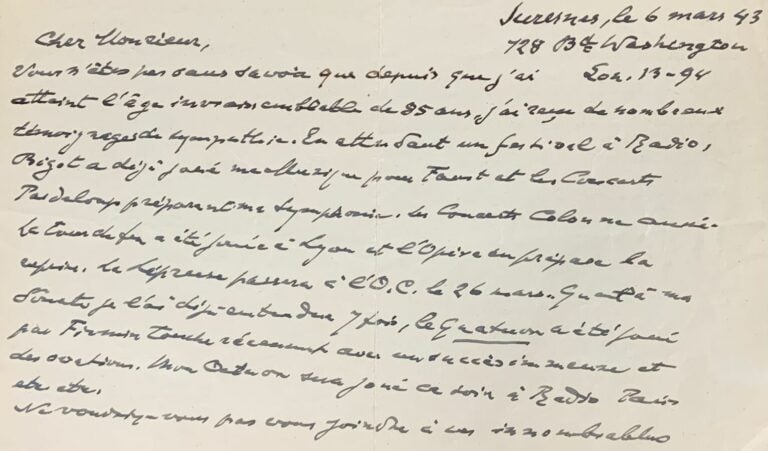 Suresnes, le 6 mars 43
728 Bd Washington
Lon. 13-94
Cher Monsieur,
Vous n'êtes pas sans savoir que depuis que j'ai
atteint l'âge invraisemblable de 85 ans, j'ai reçu de nombreux
témoignages de sympathie. En attendant un festival à Radio,
Bigot a déjà joué ma Musique pour Faust et les Concerts
Pasdeloup préparent ma Symphonie. Les Concerts Colonne aussi.
La Tour de feu a été jouée à Lyon et l'Opéra en prépare la
reprise. La Lépreuse passera à l'O.C. le 26 mars. Quant à ma
Sonate je l'ai déjà entendue 7 fois, le Quatuor a été joué
par Firmin Touche récemment avec un succès immense et
des ovations. Mon sera joué ce soir à Radio Paris
etc etc.
Ne voudriez-vous pas vous joindre à ces innombrables